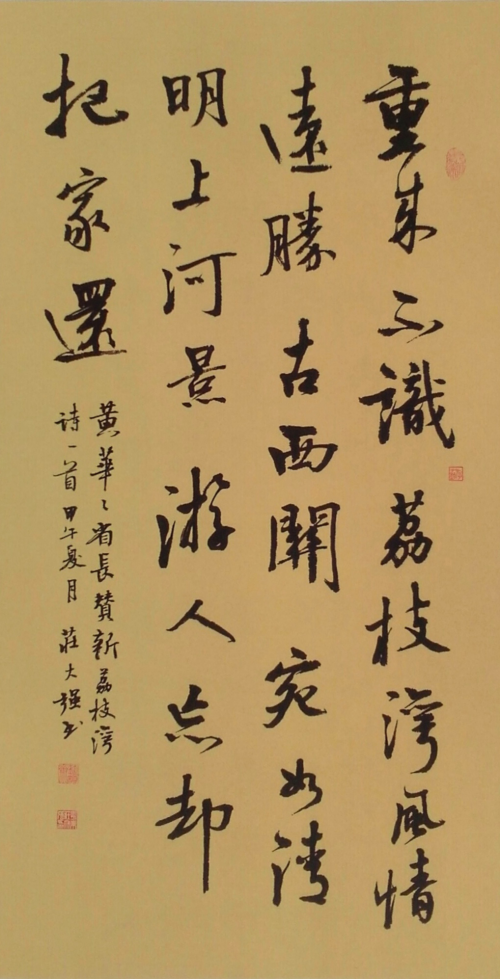 重来不識荔枝湾風情
遠勝古西關宛如清
明上河景游人忘却
把家還
黄華〻省長贊新荔枝湾
詩一首甲午夏月莊大强书